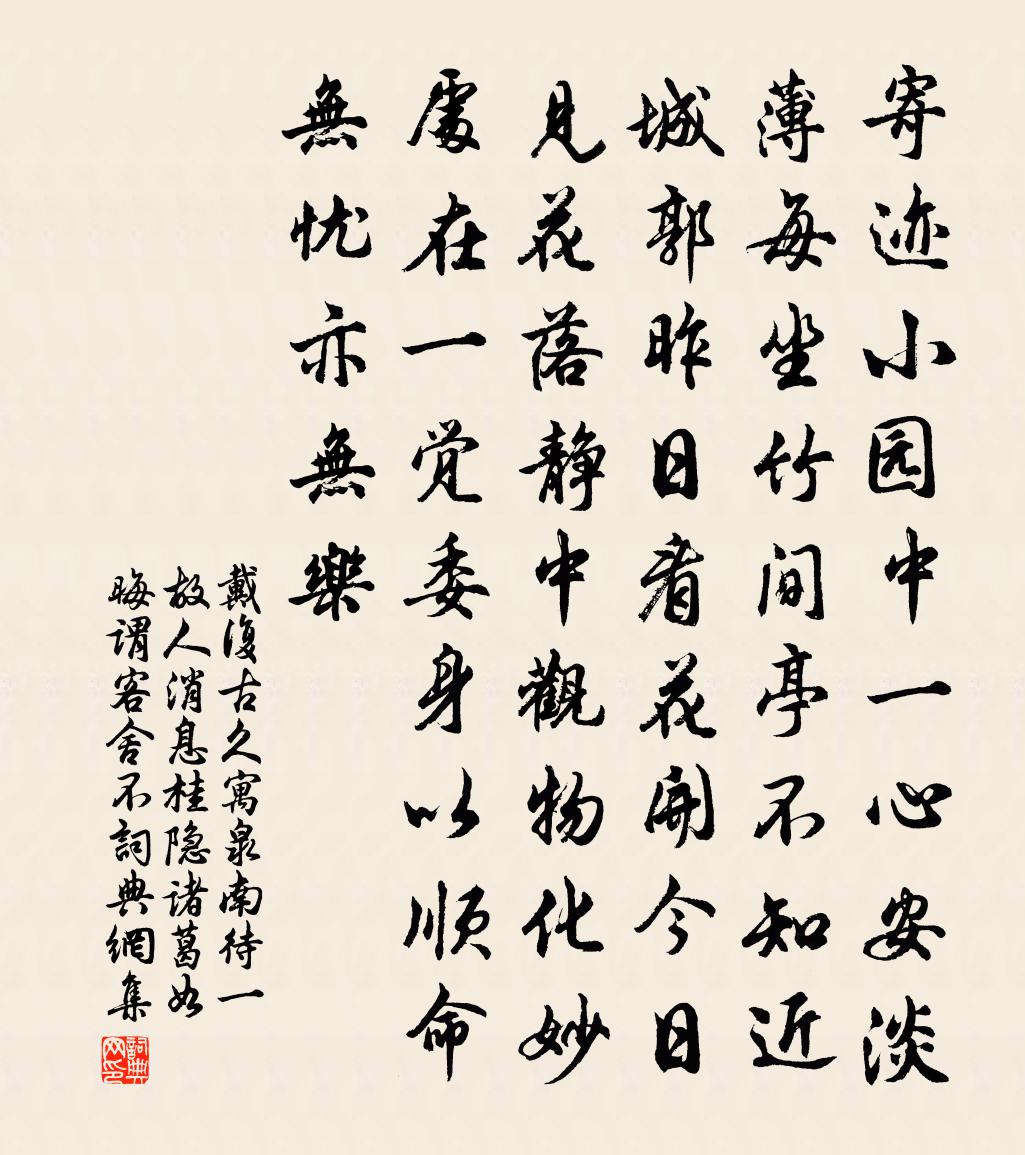 寄迹小园中一心安淡
薄每坐竹间亭不知近
城郭昨日看花開今日
見花落静中觀物化妙
處在一觉委身以順命
無忧亦無樂
戴復古久寓泉南待一
故人消息桂隐诸葛如
晦谓客舍不詞典網集
詞典网印